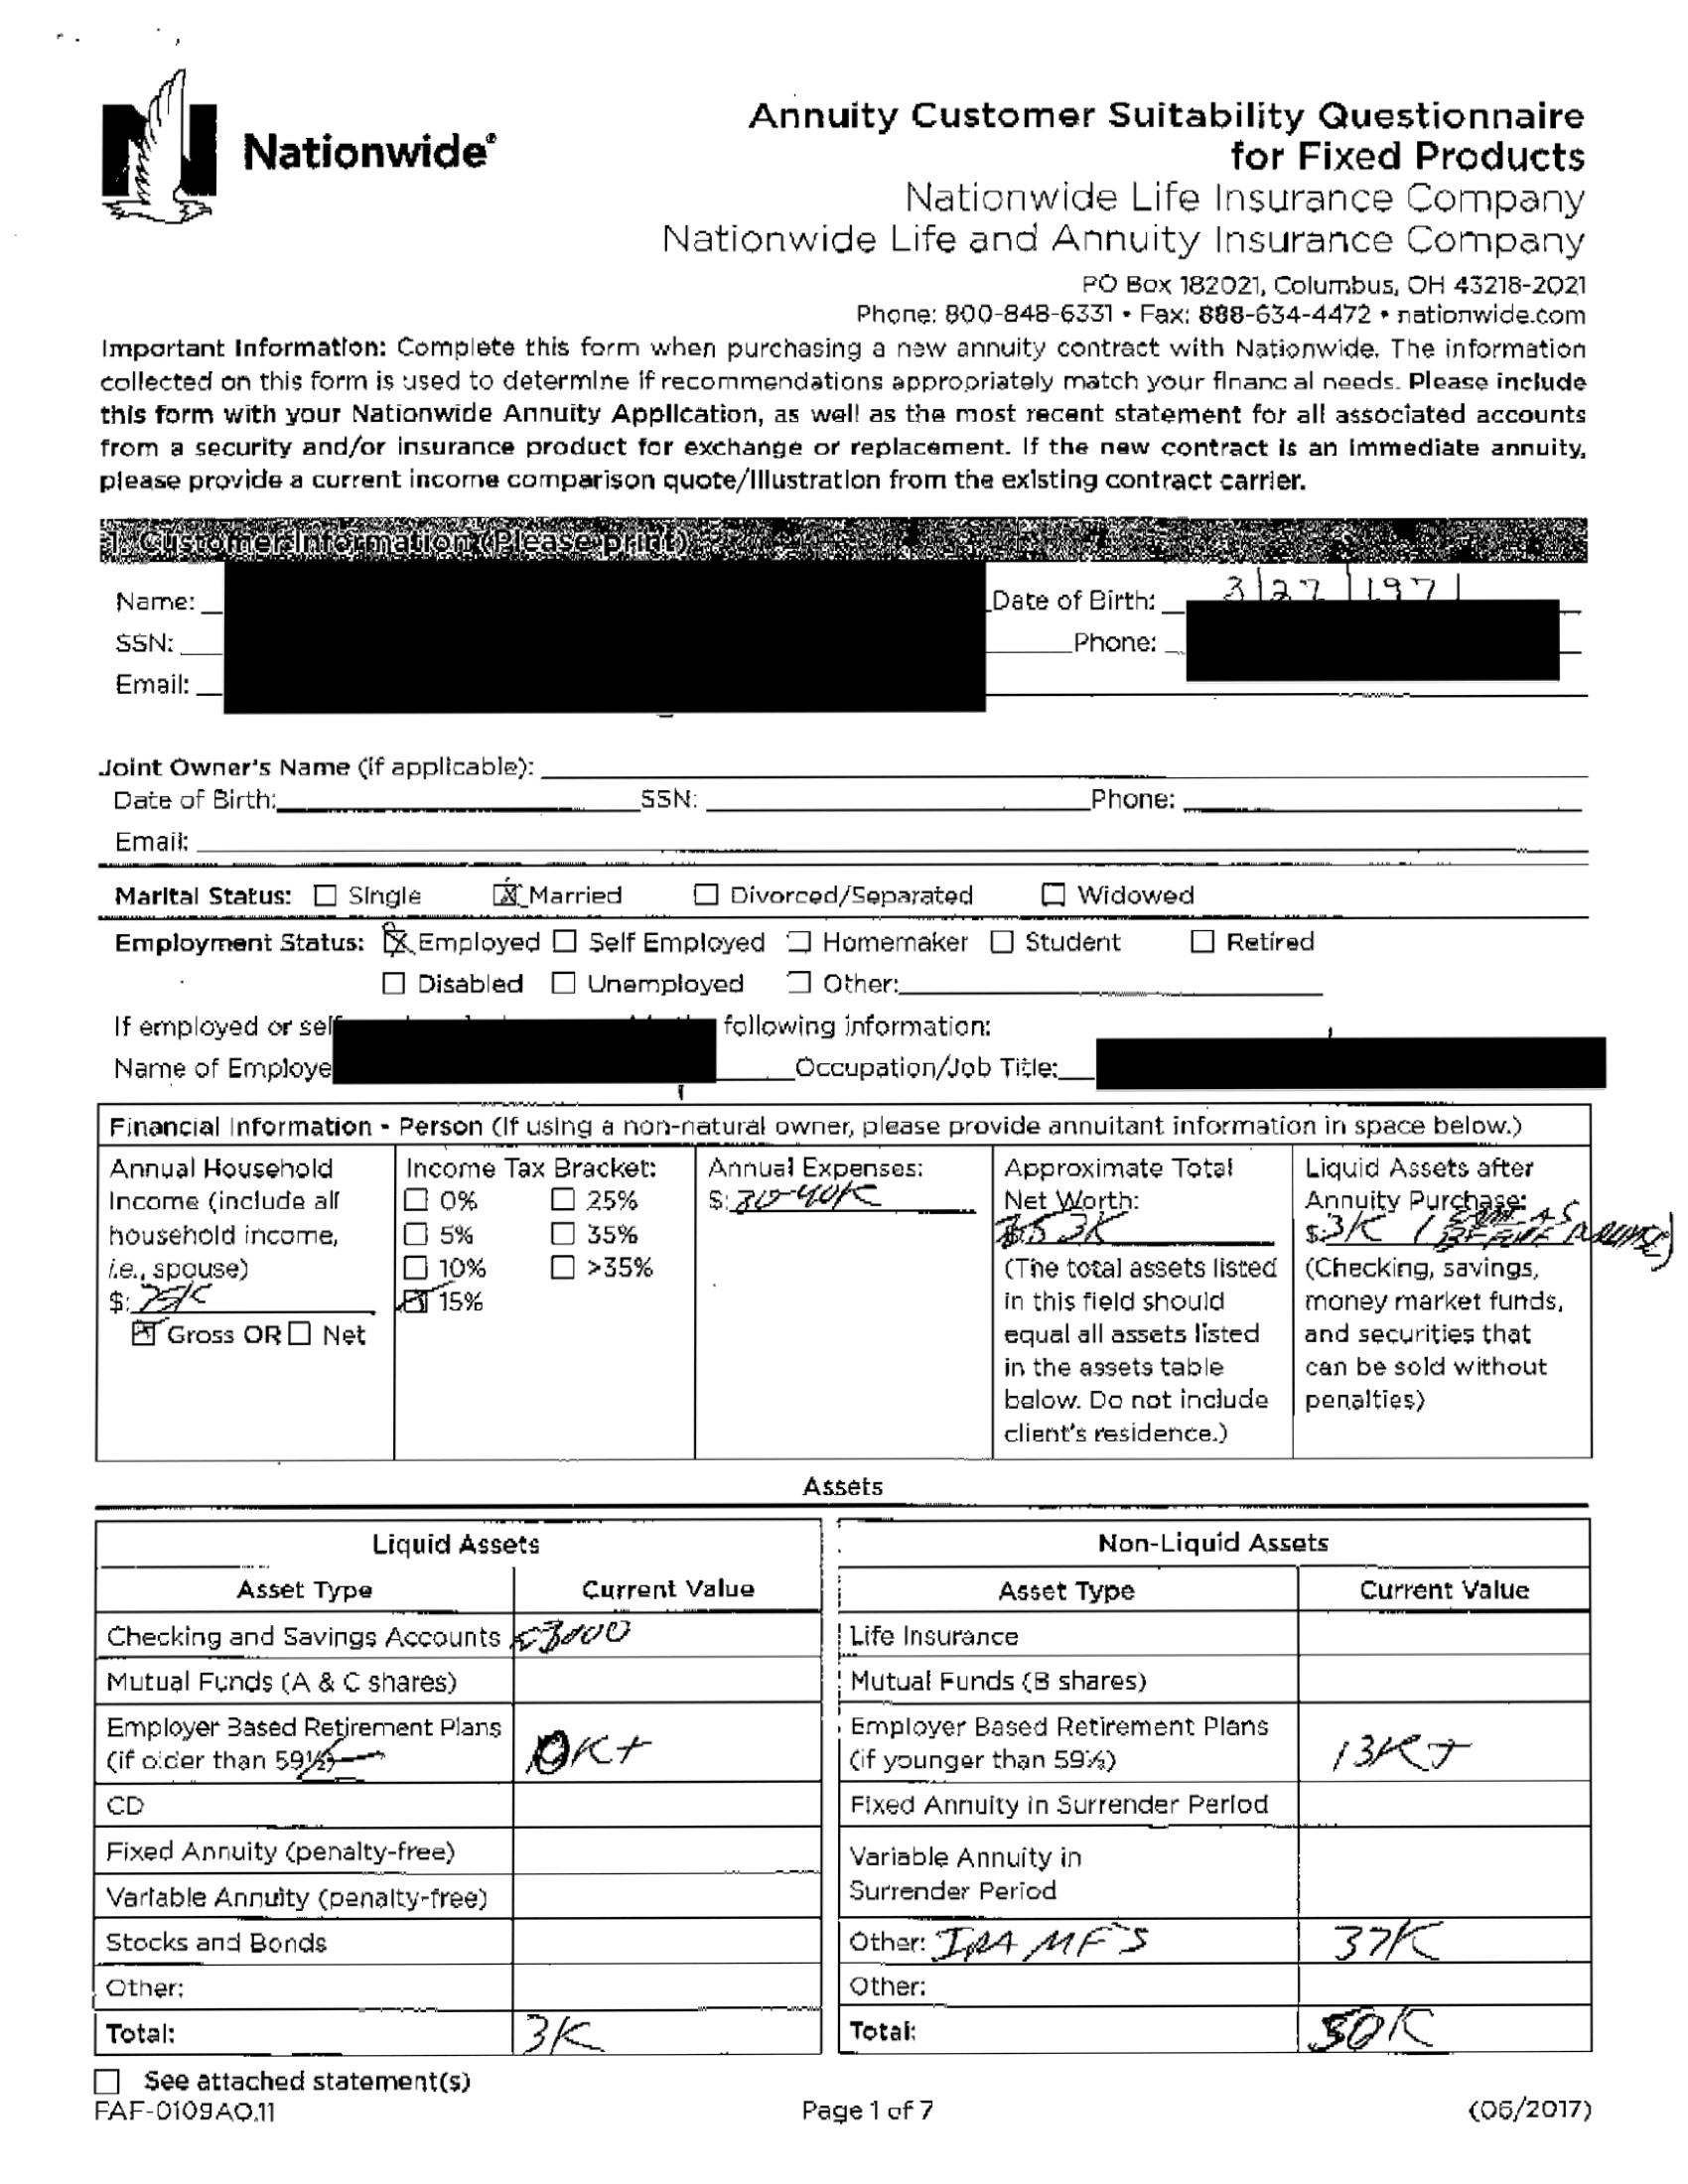 Nationwide®
Annuity Customer Suitability Questionnaire
for Fixed Products
Nationwide Life Insurance Company
Nationwide Life and Annuity Insurance Company
PO Box 182021, Columbus, OH 43218-2021
Phone: 800-848-6331 • Fax: 888-634-4472 • nationwide.com
Important Information: Complete this form when purchasing a new annuity contract with Nationwide. The information
collected on this form is used to determine if recommendations appropriately match your financ al needs. Please include
this form with your Nationwide Annuity Application, as well as the most recent statement for all associated accounts
from a security and/or insurance product for exchange or replacement. If the new contract is an immediate annuity,
please provide a current income comparison quote/illustration from the existing contract carrier.
1. Customer Information (Please print)
Name: Date of Birth: 3/27/1971
SSN: Phone:
Email:
Joint Owner's Name (if applicable):
Date of Birth: SSN: Phone:
Email:
Marital Status: ☐ Single ☒ Married ☐ Divorced/Separated ☐ Widowed
Employment Status: ☒ Employed ☐ Self Employed ☐ Homemaker ☐ Student ☐ Retired
☐ Disabled ☐ Unemployed ☐ Other:
If employed or self following information:
Name of Employe Occupation/Job Title:
Financial Information - Person (If using a non-natural owner, please provide annuitant information in space below.)
Annual Household
Income (include all
household income,
i.e., spouse)
$:
☒ Gross OR ☐ Net
Income Tax Bracket:
☐ 0% ☐ 25%
☐ 5% ☐ 35%
☐ 10% ☐ >35%
☒ 15%
Annual Expenses:
$: 30-40K
Approximate Total
Net Worth:
$ 53K
(The total assets listed
in this field should
equal all assets listed
in the assets table
below. Do not include
client's residence.)
Liquid Assets after
Annuity Purchase:
$ 3K (SAME AS
BEFORE PURCHASE)
(Checking, savings,
money market funds,
and securities that
can be sold without
penalties)
Assets
Liquid Assets
Asset Type Current Value
Checking and Savings Accounts <3000
Mutual Funds (A & C shares)
Employer Based Retirement Plans
(if older than 59½) 0K+
CD
Fixed Annuity (penalty-free)
Variable Annuity (penalty-free)
Stocks and Bonds
Other:
Total: 3K
Non-Liquid Assets
Asset Type Current Value
Life Insurance
Mutual Funds (B shares)
Employer Based Retirement Plans
(if younger than 59½) 13K+
Fixed Annuity in Surrender Period
Variable Annuity in
Surrender Period
Other: IRA MF'S 37K
Other:
Total: 50K
☐ See attached statement(s)
FAF-0109AO.11 Page 1 of 7 (06/2017)